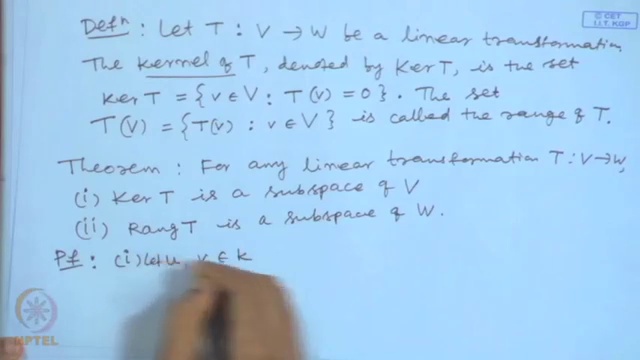 © CET
I.I.T. KGP
Defⁿ : Let T : V → W be a linear transformation.
The kernel of T, denoted by Ker T, is the set
Ker T = {v ∈ V : T(v) = 0}. The set
T(V) = {T(v) : v ∈ V} is called the range of T.
Theorem : For any linear transformation T : V → W,
(i) Ker T is a subspace of V
(ii) Rang T is a subspace of W.
Pf : (i) Let u, v ∈ K
NPTEL